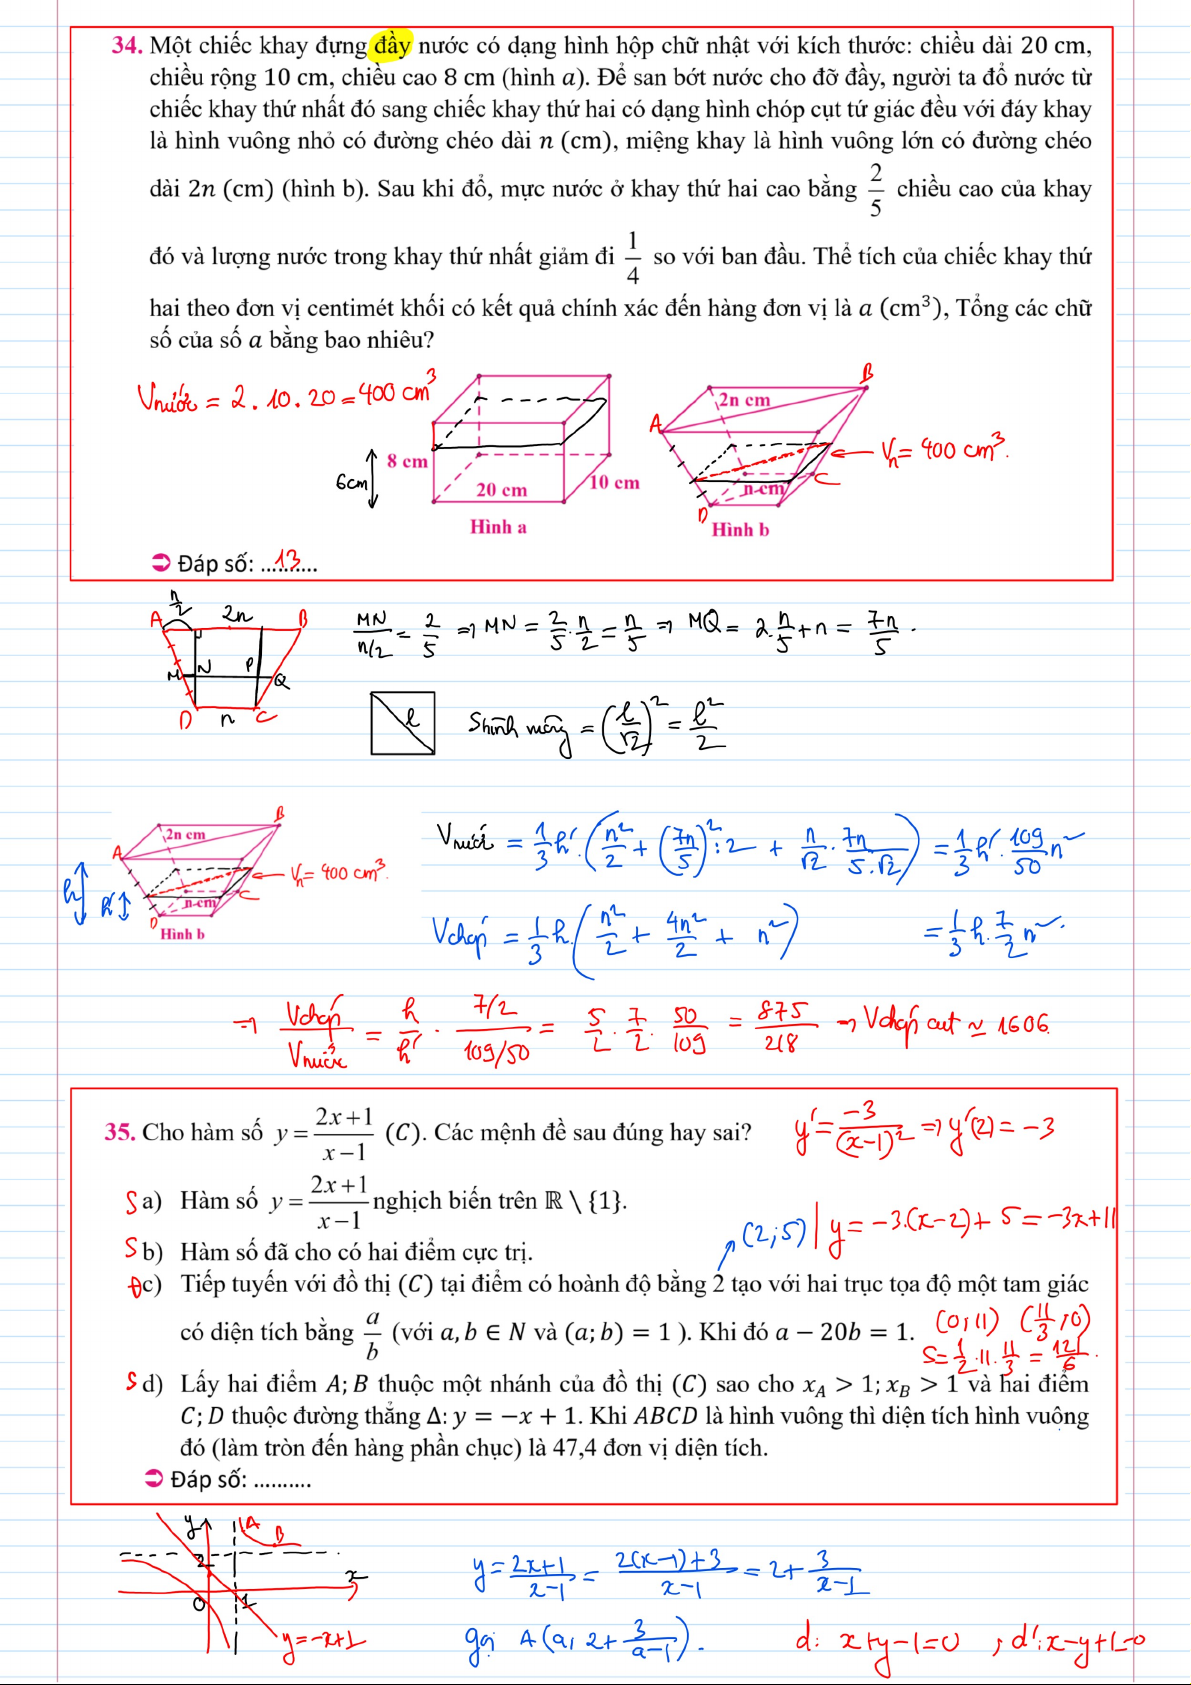 34. Một chiếc khay đựng đầy nước có dạng hình hộp chữ nhật với kích thước: chiều dài 20 cm,
chiều rộng 10 cm, chiều cao 8 cm (hình a). Để san bớt nước cho đỡ đầy, người ta đổ nước từ
chiếc khay thứ nhất đó sang chiếc khay thứ hai có dạng hình chóp cụt tứ giác đều với đáy khay
là hình vuông nhỏ có đường chéo dài n (cm), miệng khay là hình vuông lớn có đường chéo
dài 2n (cm) (hình b). Sau khi đổ, mực nước ở khay thứ hai cao bằng 2/5 chiều cao của khay
đó và lượng nước trong khay thứ nhất giảm đi 1/4 so với ban đầu. Thể tích của chiếc khay thứ
hai theo đơn vị centimét khối có kết quả chính xác đến hàng đơn vị là a (cm³), Tổng các chữ
số của số a bằng bao nhiêu?
Vnước = 2.10.20 = 400 cm³
8 cm
6cm
20 cm
10 cm
Hình a
A
B
2n cm
Vn = 400 cm³.
C
n cm
D
Hình b
➲ Đáp số: ..........
13
n/2
A 2n B
M N P Q
D n C
MN/(n/2) = 2/5 ⇒ MN = 2/5 . n/2 = n/5 ⇒ MQ = 2.n/5 + n = 7n/5 .
l
Shình vuông = (l/√2)² = l²/2
B
2n cm
A
Vn = 400 cm³.
h
h'
C
n cm
D
Hình b
Vnước = 1/3 h'.(n²/2 + (7n/5)² : 2 + n/√2 . 7n/5.√2) = 1/3 h'. 109/50 n²
Vchóp = 1/3 h.(n²/2 + 4n²/2 + n²) = 1/3 h. 7/2 n².
⇒ Vchóp/Vnước = h/h' . (7/2)/(109/50) = 5/2 . 7/2 . 50/109 = 875/218 ⇒ Vchóp cụt ≈ 1606.
35. Cho hàm số y = (2x+1)/(x−1) (C). Các mệnh đề sau đúng hay sai?
y' = −3/(x−1)² ⇒ y'(2) = −3
S a) Hàm số y = (2x+1)/(x−1) nghịch biến trên ℝ \ {1}.
(2;5) | y = −3.(x−2) + 5 = −3x+11
S b) Hàm số đã cho có hai điểm cực trị.
Đ c) Tiếp tuyến với đồ thị (C) tại điểm có hoành độ bằng 2 tạo với hai trục tọa độ một tam giác
có diện tích bằng a/b (với a, b ∈ N và (a; b) = 1 ). Khi đó a − 20b = 1.
(0;11) (11/3;0)
S = 1/2 .11. 11/3 = 121/6 .
S d) Lấy hai điểm A; B thuộc một nhánh của đồ thị (C) sao cho xA > 1; xB > 1 và hai điểm
C; D thuộc đường thẳng Δ: y = −x + 1. Khi ABCD là hình vuông thì diện tích hình vuông
đó (làm tròn đến hàng phần chục) là 47,4 đơn vị diện tích.
➲ Đáp số: ..........
y
A
B
2
x
0
1
y = −x+1
y = (2x+1)/(x−1) = (2(x−1)+3)/(x−1) = 2 + 3/(x−1)
gọi A(a; 2 + 3/(a−1)).
d: x+y−1=0 , d': x−y+1=0